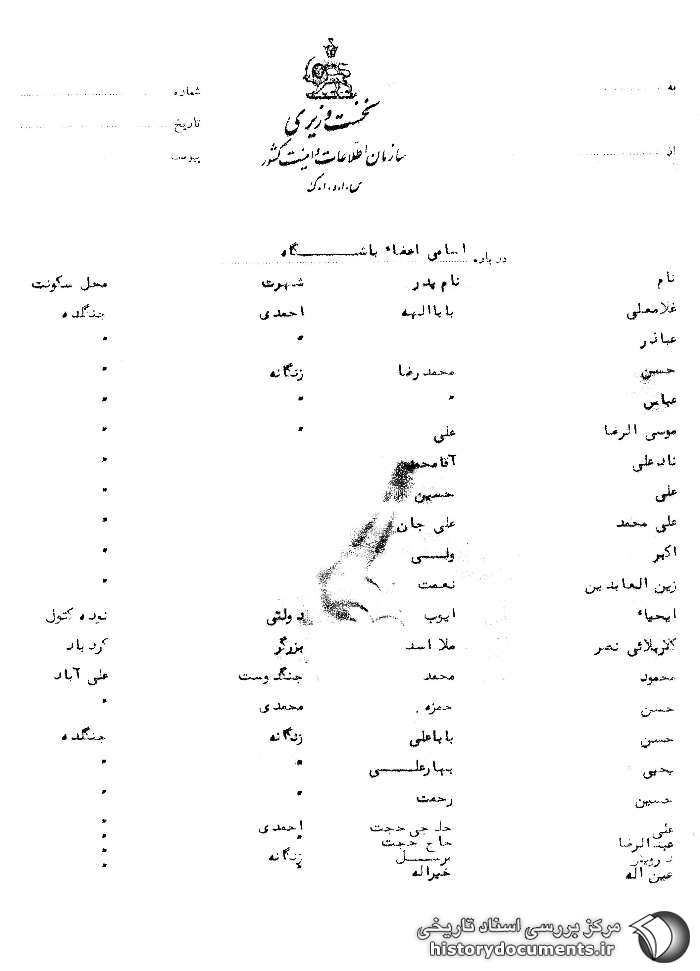 به
شماره
نخست وزیری
تاریخ
سازمان اطلاعات و امنیت کشور
از
پیوست
س.ا.و.ا.ک
درباره اسامی اعضاء باشگاه
نام نام پدر شهرت محل سکونت
غلامعلی باباالهه احمدی جنگلده
عباذر " "
حسن محمدرضا زنگانه "
عباس " " "
موسی الرضا علی " "
نادعلی آقامحمد "
علی حسین "
علی محمد علی جان "
اکبر ولی "
زین العابدین نعمت "
ایحیاء ایوب دولتی نوده کتول
کربلائی نصر ملا اسد بزرگر کرد باد
محمود محمد جنگدوست علی آباد
حسن حمزه محمدی "
حسن باباعلی زنگانه جنگلده
یحیی بهارعلی " "
حسین رحمت " "
علی حاجی حجت احمدی "
عبدالرضا حاج حجت " "
زنگانه "
عین اله خیراله " "
مرکز بررسی اسناد تاریخی
historydocuments.ir